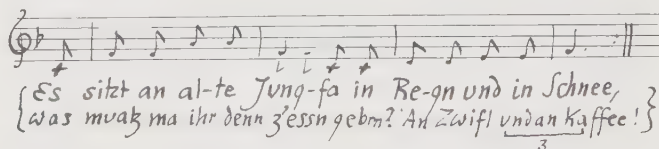 Es sitzt an al-te Jung-fa in Re-gn und in Schnee,
was muaß ma ihr denn z'essn gebm? An Zwifl und an Kaffee!
3